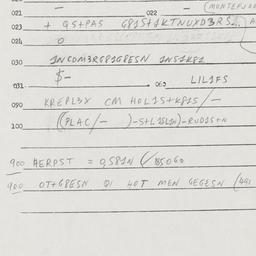 021 — 022 — (MONTEPJ
023 + QS+PAS G81S+1KTNUXD3RS...
024 O
030 1NCOM3RG81G8ESN 1NS1K81
$-
031 — 063 LIL1FS
090 KREPL3X CM HOL1S+K81S/—
100 ((PLAC/— )-S+L1SL1N)-RUD1S+N
900 AERPST = 0,581N (/85060
900 OT+G8ESN 01 HOT MEN GEGESN (491